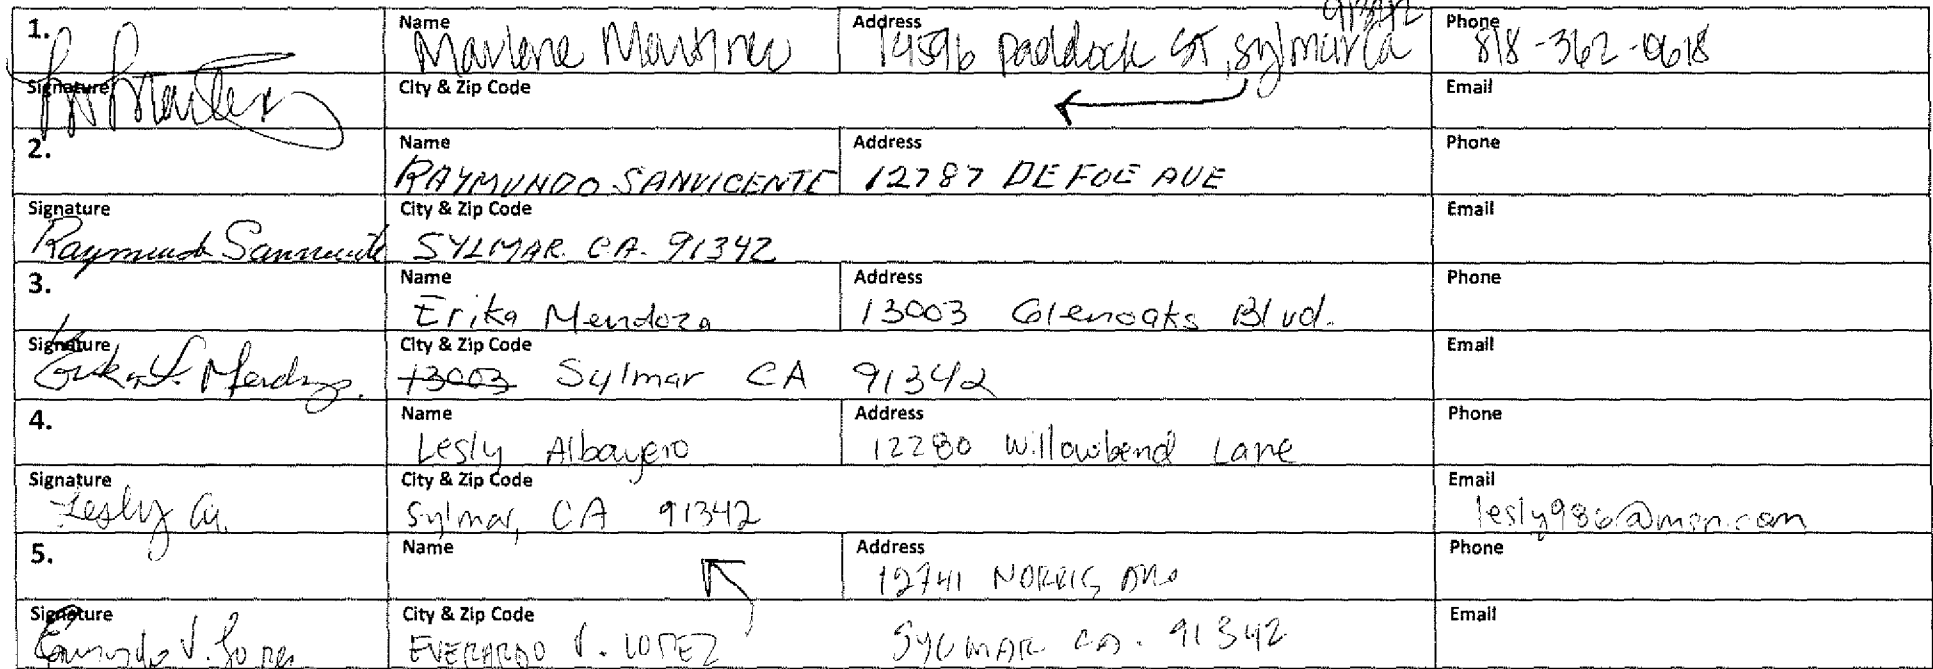 1. Name Marlene Martinez Address 14596 Paddock ST, Sylmar Ca 91342 Phone 818-362-0618
Signature City & Zip Code Email
2. Name RAYMUNDO SANVICENTE Address 12787 DE FOE AVE Phone
Signature Raymundo Sanvicente City & Zip Code SYLMAR. CA. 91342 Email
3. Name Erika Mendoza Address 13003 Glenoaks Blvd. Phone
Signature Erika Y. Mendoza. City & Zip Code 13003 Sylmar CA 91342 Email
4. Name Lesly Albayero Address 12280 Willowbend Lane Phone
Signature Lesly A. City & Zip Code Sylmar, CA 91342 Email lesly986@msn.com
5. Name Address 12741 NORRIS Ave Phone
Signature City & Zip Code EVERARDO V. LOPEZ SYLMAR CA. 91342 Email